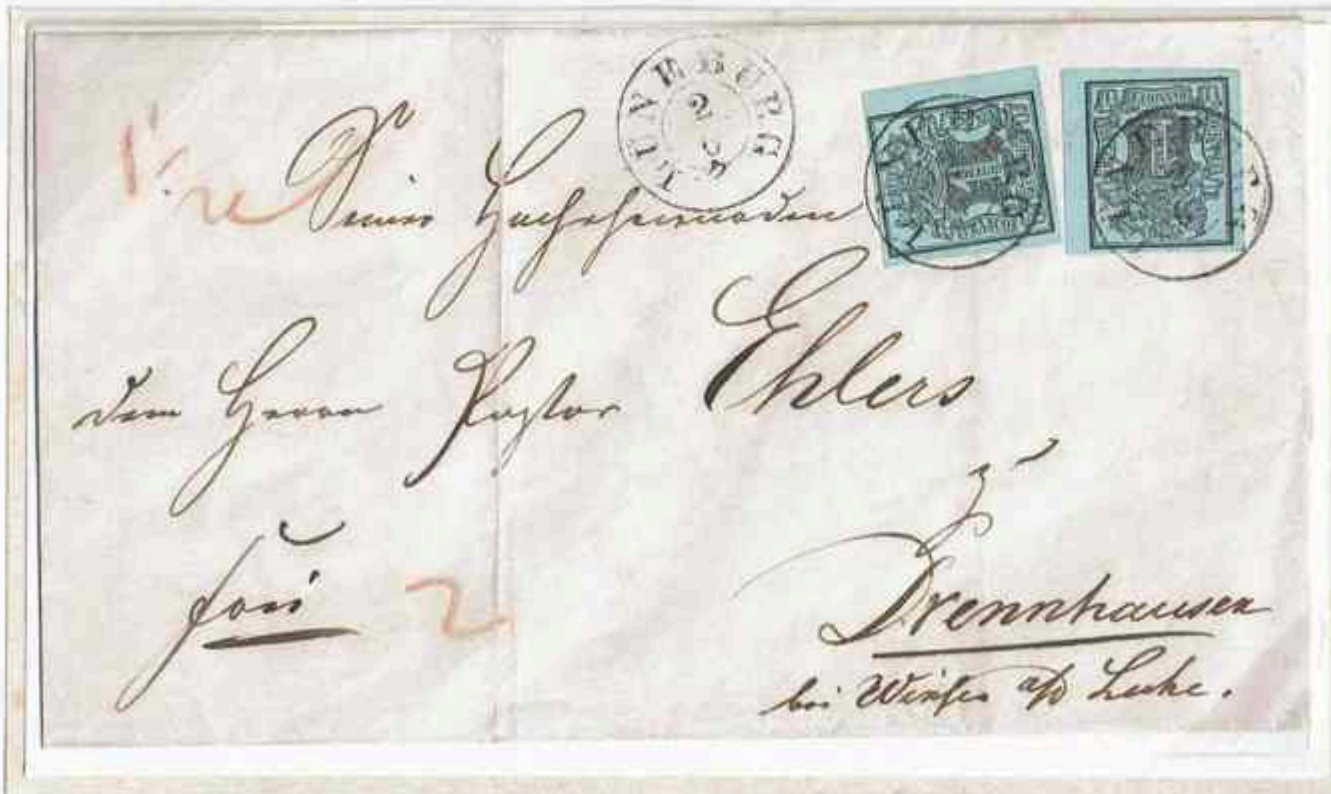 LUNEBURG
2
Seiner Hochehrwürden
dem Herrn Pastor Ehlers
zu
frei
2
Drennhausen
bei Winsen a/d Luhe.